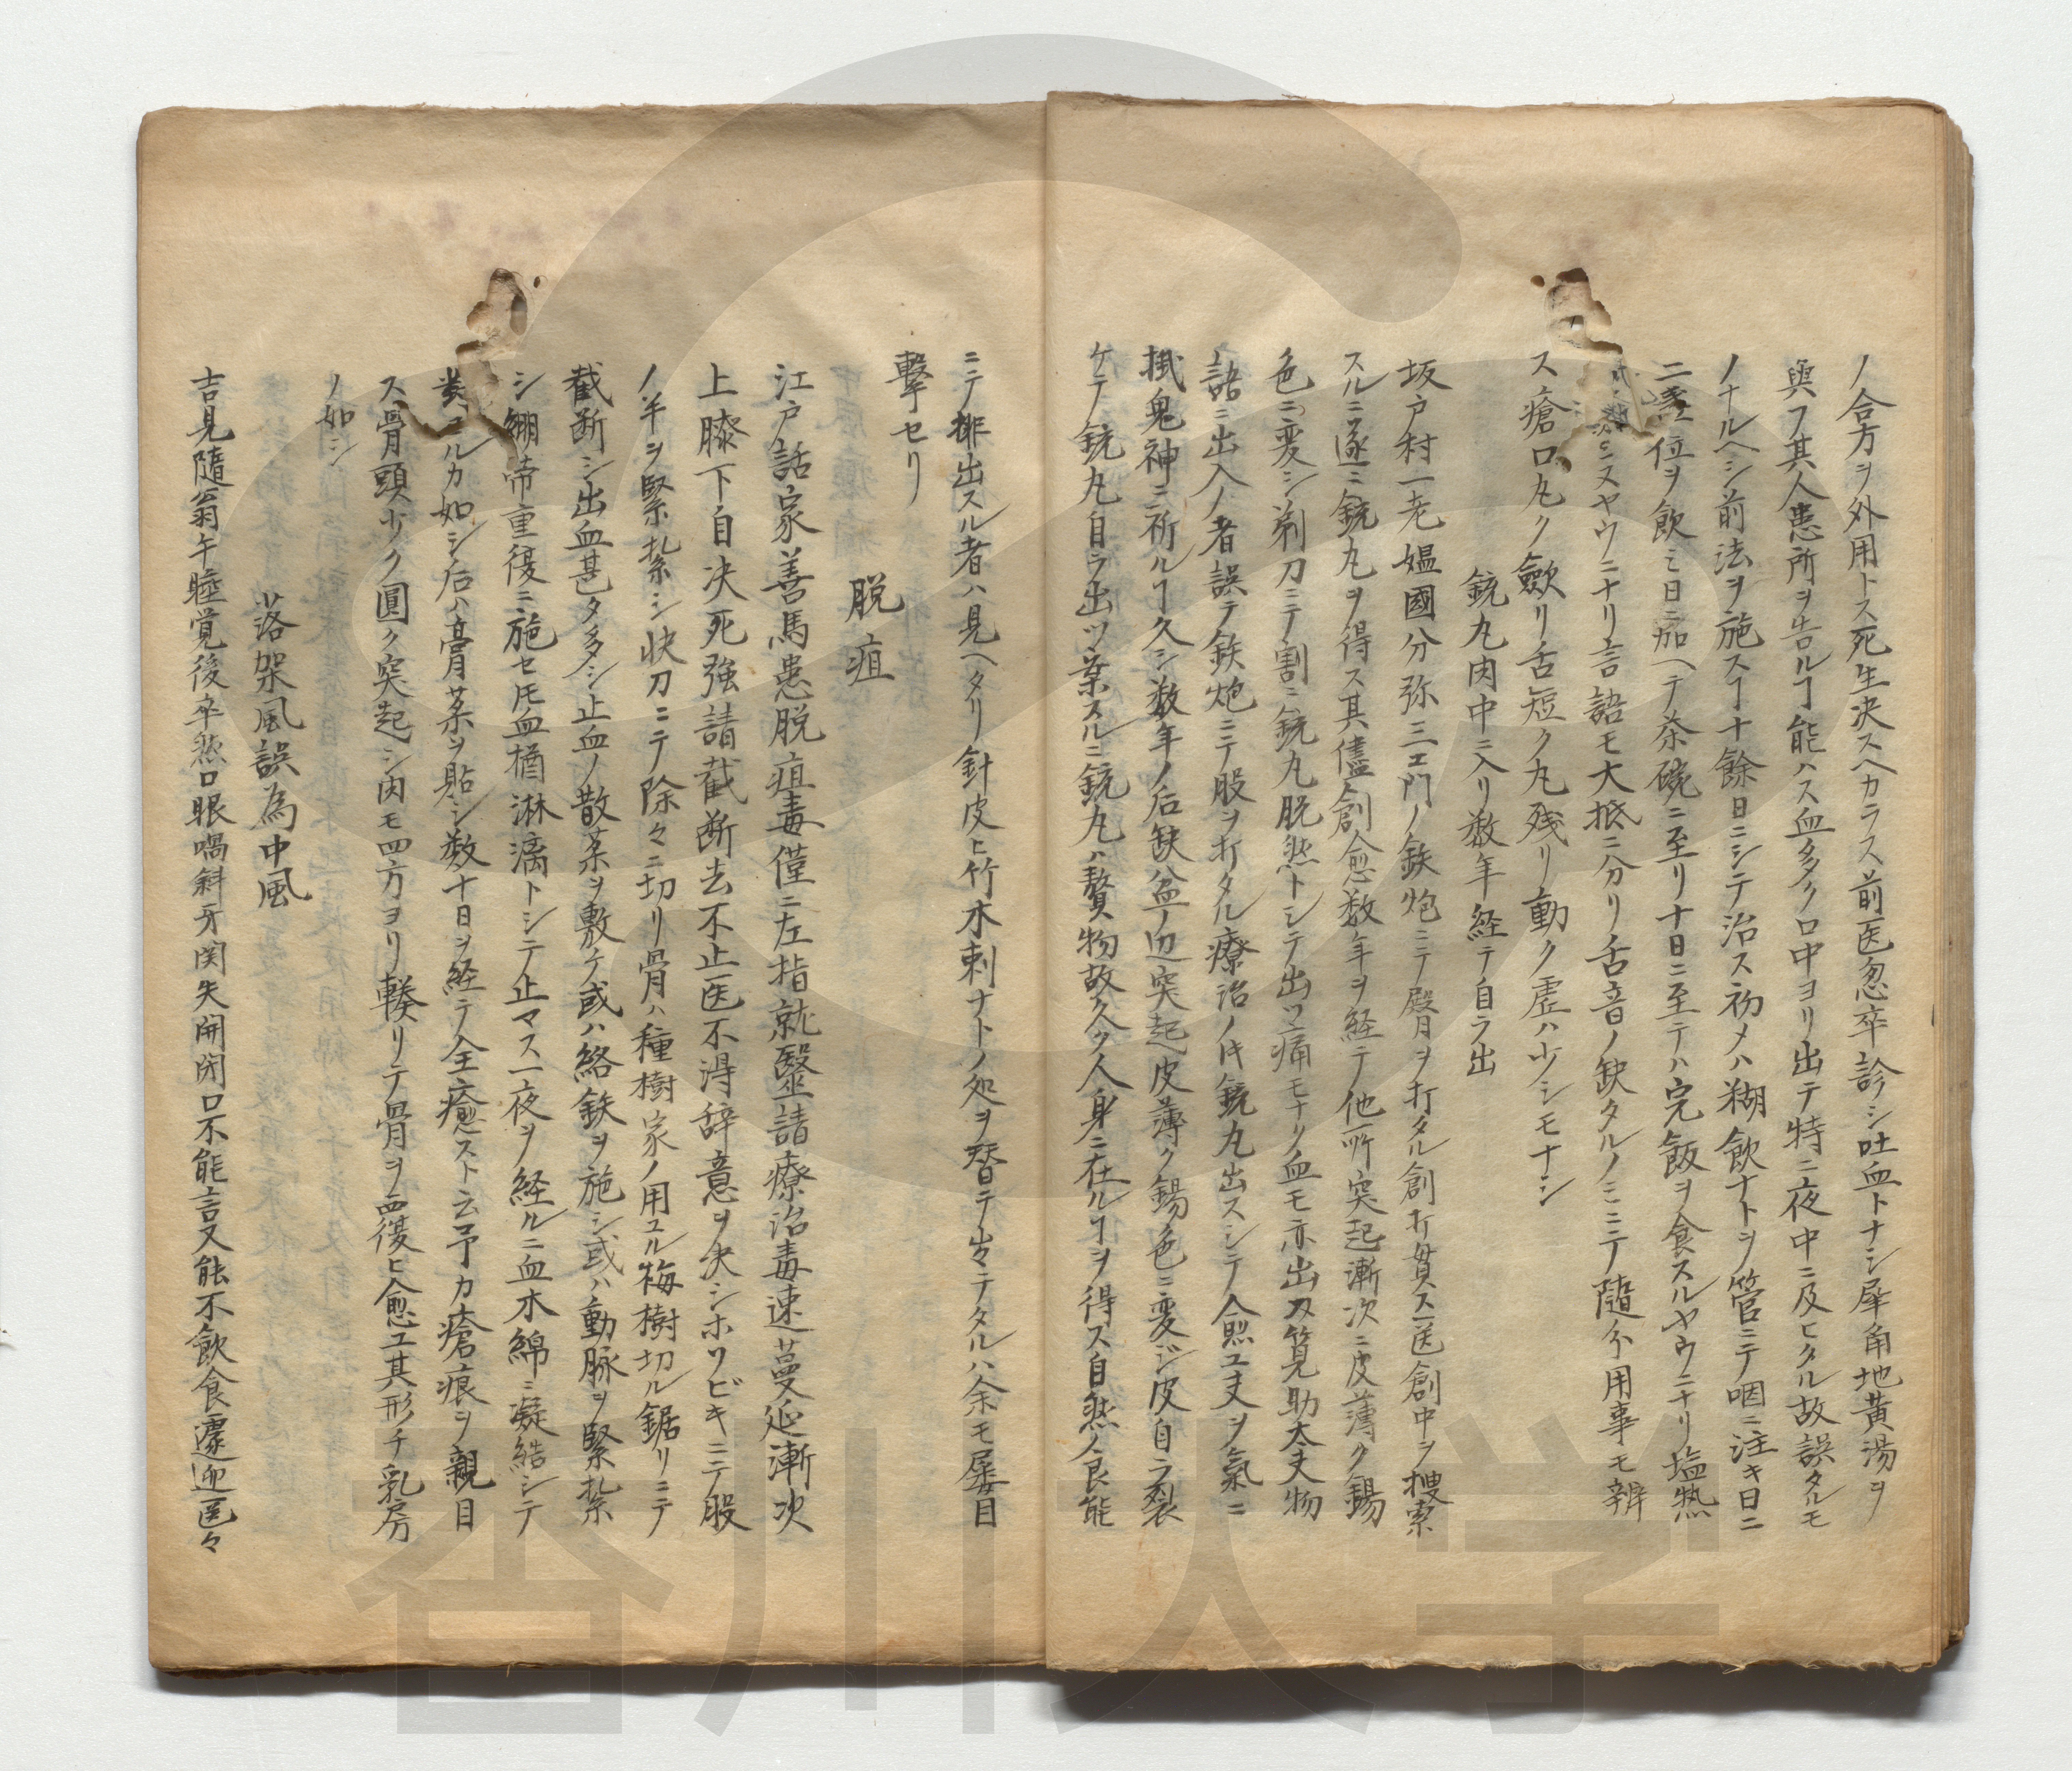 ノ合方ヲ外用トス死生決スヘカラス前医忽卒診シ吐血トナシ犀角地黄湯ヲ
與フ其人患所ヲ告ルヿ能ハス血多ク口中ヨリ出テ特ニ夜中ニ及ヒタル故誤タルモ
ノナルヘシ前法ヲ施スヿ十餘日ニシテ治ス初メハ糊飲ナトヲ管ニテ咽ニ注キ日ニ
二 位ヲ飲ミ日ニ加ヘテ茶碗ニ至リ十日ニ至テハ完飯ヲ食スルヤウニナリ塩熱
ニスヤウニナリ言語モ大抵ニ分リ舌音ノ缺タルノミニテ隨分用事モ辨
ス瘡口丸ク歛リ舌短ク丸残リ動ク虚ハ少シモナシ
銃丸肉中ニ入リ数年経テ自ラ出
坂戸村一老媼國分弥三エ門ノ鉄炮ニテ臀ヲ打タル創打貫ス医創中ヲ搜索
スルニ遂ニ銃丸ヲ得ス其儘創愈数年ヲ経テ他所突起漸次ニ皮薄ク錫
色ニ変シ剃刀ニテ割ニ銃丸脱然トシテ出ツ痛モナク血モ亦出ス筧助太夫物
語ニ出入ノ者誤テ鉄炮ニテ股ヲ打タル療治ノ𪜈銃丸出スシテ愈エ夫ヲ氣ニ
掛鬼神ニ祈ルヿ久シ数年ノ后缺盆ノ辺突起皮薄ク錫色ニ変ジ皮自ラ裂
ケテ銃丸自ラ出ツ案スルニ銃丸ハ贅物故久ク人身ニ在ルヿヲ得ス自然ノ良能
ニテ排出スル者ハ見ヘタリ針皮ヒ竹木刺ナトノ処ヲ替テ出テタルハ余モ屡目
撃セリ
脱疽
江戸話家善馬患脱疽毒僅ニ左指就毉請療治毒速蔓延漸次
上膝下自决死強請截断去不止医不得辞意ヲ决シホソビキニテ股
ノ半ヲ緊紮シ快刀ニテ除々ニ切リ骨ハ種樹家ノ用ユル梅樹切ル鋸リニテ
截断シ出血甚タ多シ止血ノ散薬ヲ敷ケ或ハ烙鉄ヲ施シ或ハ動脉ヲ緊紮
シ繃帯重復ニ施セ𪜈血楢淋漓トシテ止マス一夜ヲ経ルニ血木綿ニ凝結シテ
ルカ如シ后ハ膏薬ヲ貼シ数十日ヲ経テ全癒スト云予カ瘡痕ヲ親目
ス骨頭少ク圓ク突起シ肉モ四方ヨリ輳リテ骨ヲ面復ヒ愈エ其形チ乳房
ノ如シ
落架風誤為中風
吉見隨翁午睡覚後卒然口眼喎斜牙関失開閉口不能言又能不飲食遽迎医々